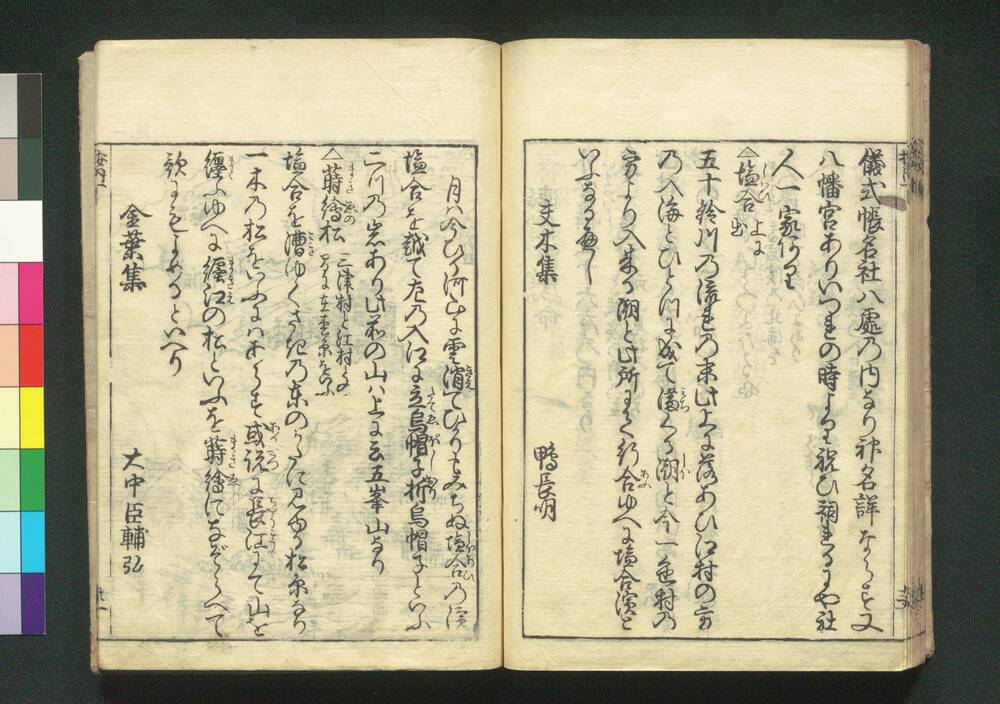 儀式帳名社八處乃内なり神名詳ならす又
八幡宮ありいつれの時よりか祝ひ祠れるにや社
人一家あり
△塩合 上に出
五十鈴川乃流れ乃末此上に落あひ江村の方
乃入海とひとつに成て満くる潮と今一色村乃
方より入来る潮と此所にて行合ゆへに塩合濱と
いふなるへし
夫木集 鴨長明
月八今ひる河山に雲消てひかりもみちぬ塩合乃濱
塩合を越て左乃入江に立烏帽子折烏帽子といふ
二川乃岩あり此前の山ハ上に云五峯山なり
△蒔繪松 三津村と江村との
間に在並木をいふ
塩合を漕ゆくさき乃東のかたに見ゆる松原なり
一木乃松をいふにハあらす或説に長江にて山を
纏ふゆへに纏江の松といふを蒔繪になぞらへて
歌にもよめるといへり
金葉集 大中臣輔弘